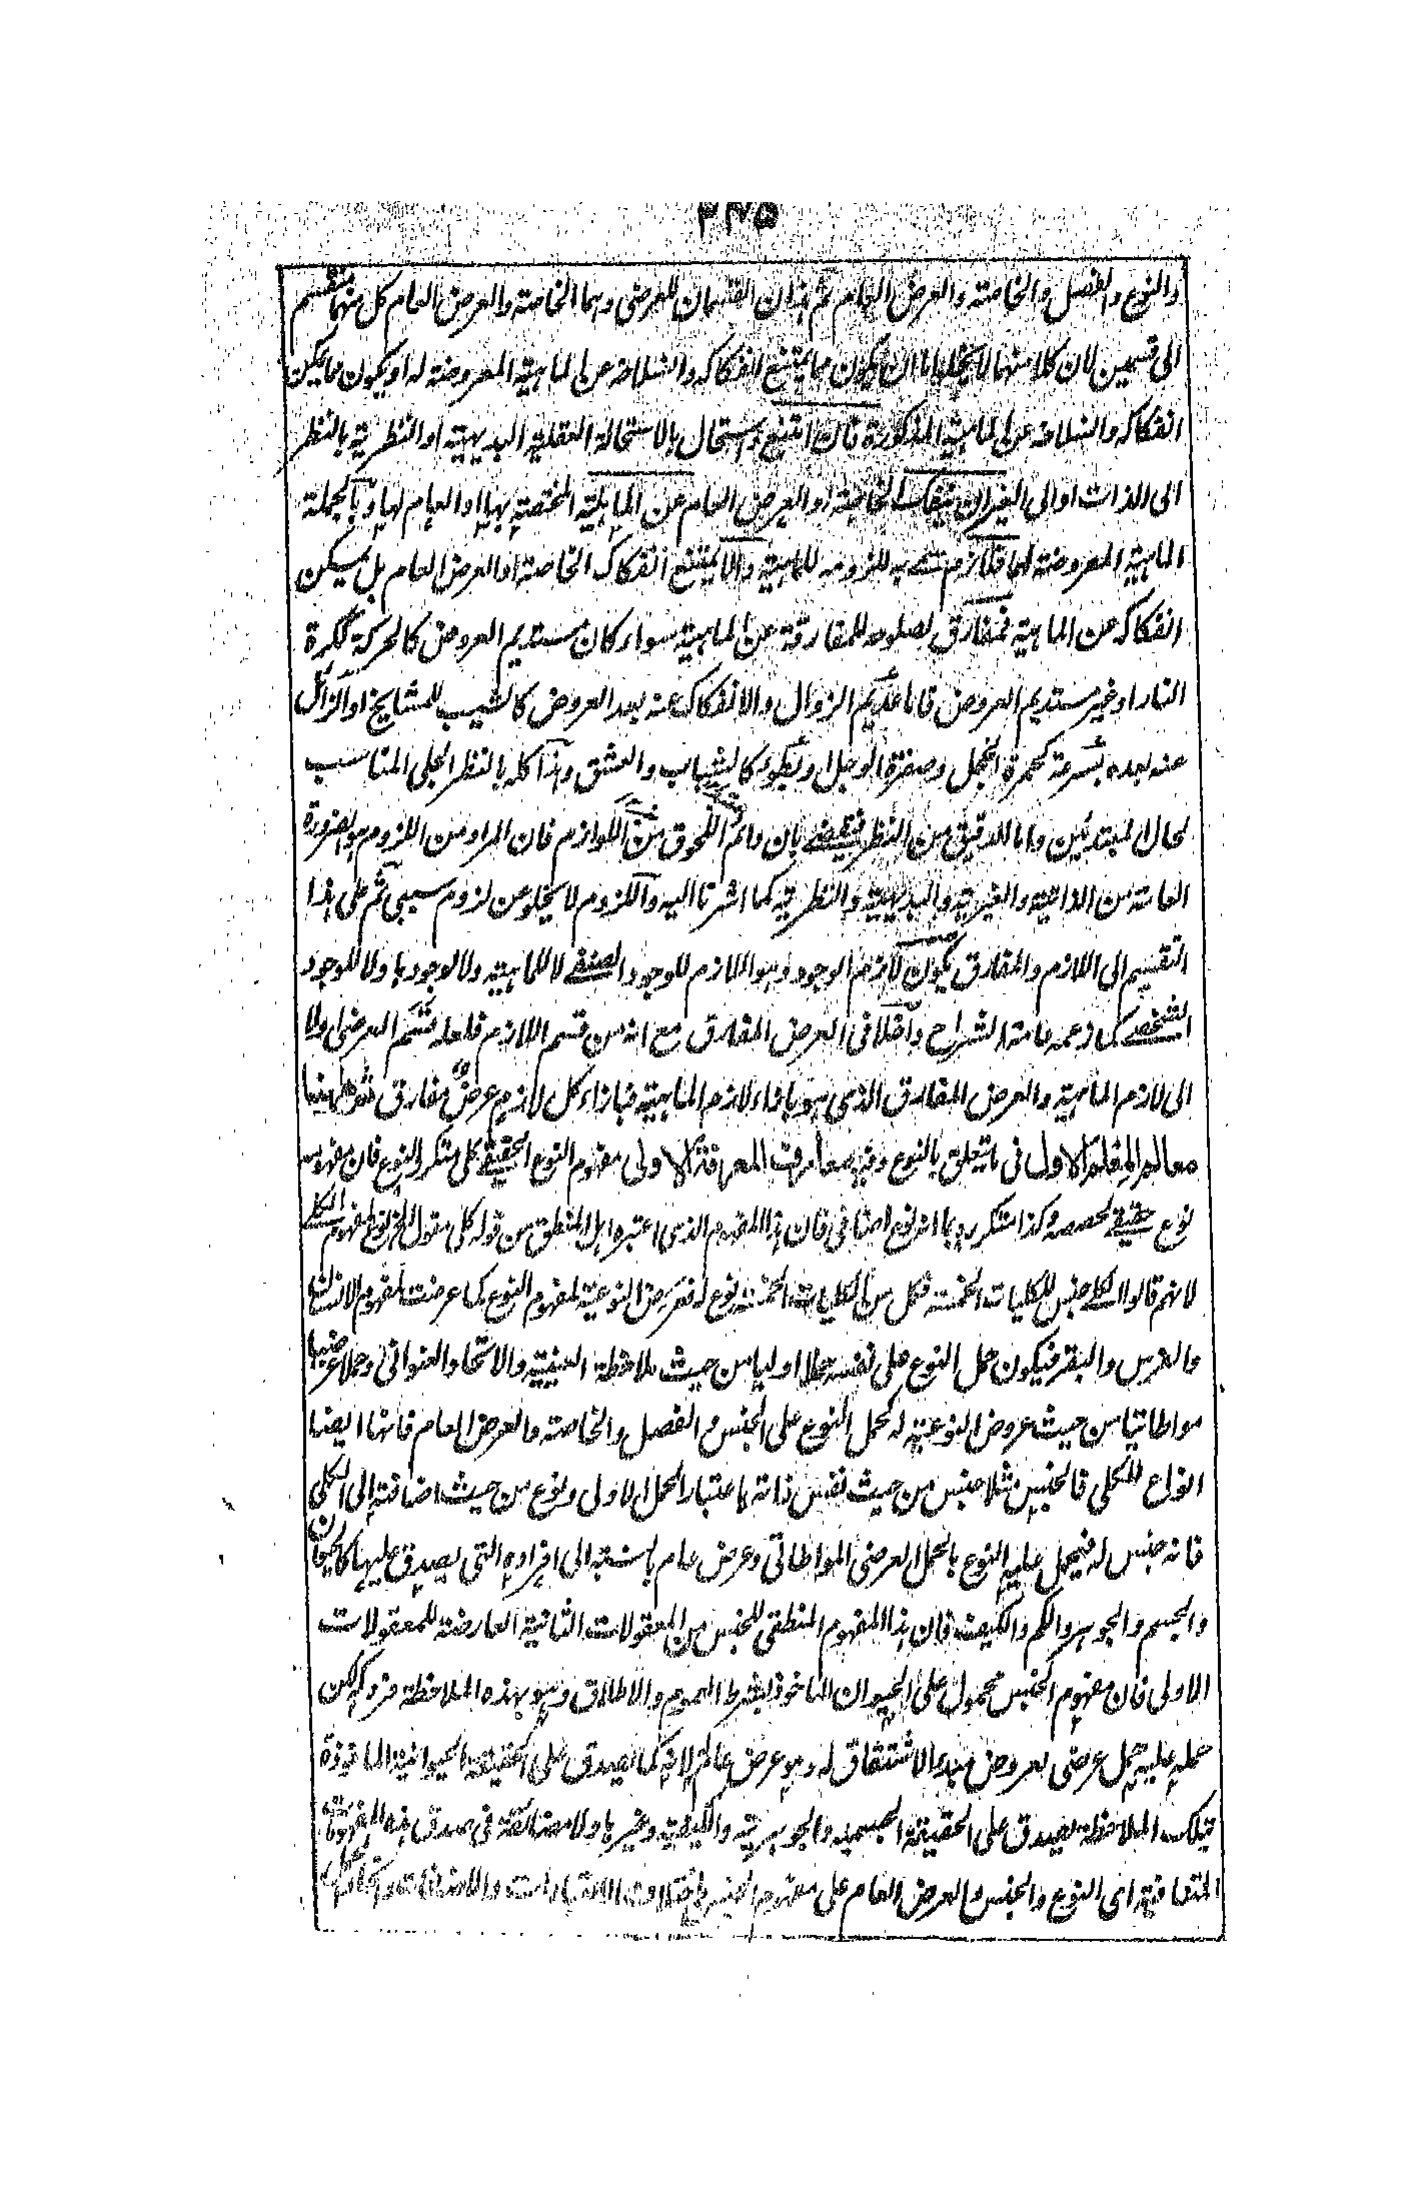 ۲۳۵
والنوع والفصل والخاصة والعرض العام ثم هذان القسمان للعرضى وهما الخاصة والعرض العام كل منهما ينقسم
الى قسمين لان كلا منهما لا يخلو اما ان يكون مما يمتنع انفكاكه وانسلاخه عن الماهية المعروضة له او يكون مما يمكن
انفكاكه وانسلاخه عن الماهية المذكورة فان امتنع واستحال بالاستحالة العقلية البديهية او النظرية بالنظر
الى الذات او الى الغير ان ينفك الخاصة او العرض العام عن الماهية المختصة بها او العام لها وبالجملة
الماهية المعروضة لهما فلازم سمى به للزومه للماهية والا يمتنع انفكاك الخاصة او العرض العام بل يمكن
انفكاكه عن الماهية فمفارق لصلوحه للمفارقة عن الماهية سواء كان مستديم العروض كالحركة لكرة
النار او غير مستديم العروض فاما عديم الزوال والانفكاك عنه بعد العروض كالشيب للمشايخ او الزائل
عنه بعده بسرعة كحمرة الخجل وصفرة الوجل وبطوء كالشباب والعشق وهذا كله بالنظر الجلى المناسب
لحال المبتدئين واما الدقيق من النظر فيقضى بان دائم اللحوق من اللوازم فان المراد من اللزوم هو الضرورة
العامة من الذاتية والغيرية والبديهية والنظرية كما اشرنا اليه واللزوم لا يخلو عن لزوم سببى ثم على هذا
التقسيم الى اللازم والمفارق يكون لازم الوجود وهو اللازم للوجود الصنفى لا للماهية ولا لوجودها ولا للوجود
الشخصى كما زعمه عامة الشراح داخلا فى العرض المفارق مع انه من قسم اللازم فلعله قسم العرضى اولا
الى لازم الماهية والعرض المفارق الذى هو بازاء لازم الماهية فبازاء كل لازم عرض مفارق ثم ههنا
معالم المعلم الاول فى ما يتعلق بالنوع وفيه معارف المعرفة الاولى مفهوم النوع الحقيقى كلى متكرر النوع فان مفهومه
نوع حقيقى لحصصه وكذا متكرر بما انه نوع اضافى فان هذا المفهوم الذى اعتبره اهل المنطق من قوله كلى مقول الخ نوع لمفهوم الكلى
لانهم قالوا الكلى جنس للكليات الخمسة فكل من الكليات الخمسة نوع له فعرض النوعية لمفهوم النوع كما عرضت لمفهوم الانسان
والفرس والبقر فيكون حمل النوع على نفسه حملا اوليا من حيث ملاحظة العينية والاتحاد العنوانى وحملا عرضيا
مواطاتيا من حيث عروض النوعية له كحمل النوع على الجنس والفصل والخاصة والعرض العام فانها ايضا
انواع للكلى فالجنس مثلا جنس من حيث نفس ذاته باعتبار الحمل الاولى ونوع من حيث اضافته الى الكلى
فانه جنس له فيحمل عليه النوع بالحمل العرضى المواطاتى وعرض عام بالنسبة الى افراده التى يصدق عليها كالحيوان
والجسم والجوهر والكم والكيف فان هذا المفهوم المنطقى للجنس من المعقولات الثانية العارضة للمعقولات
الاولى فان مفهوم الجنس محمول على الحيوان الماخوذ بشرط العموم والاطلاق وهو بهذه الملاحظة فرد له لكن
حمله عليه حمل عرضى بعروض مبدء الاشتقاق له وهو عرض عام له لانه كما يصدق على الحقيقة الحيوانية الماخوذة
بتلك الملاحظة يصدق على الحقيقة الجسمية والجوهرية والكيفية وغيرها ولا مضائقة فى صدق هذه المفهومات
المتنافية اى النوع والجنس والعرض العام على مفهوم الجنس باختلاف الاعتبارات والاضافات